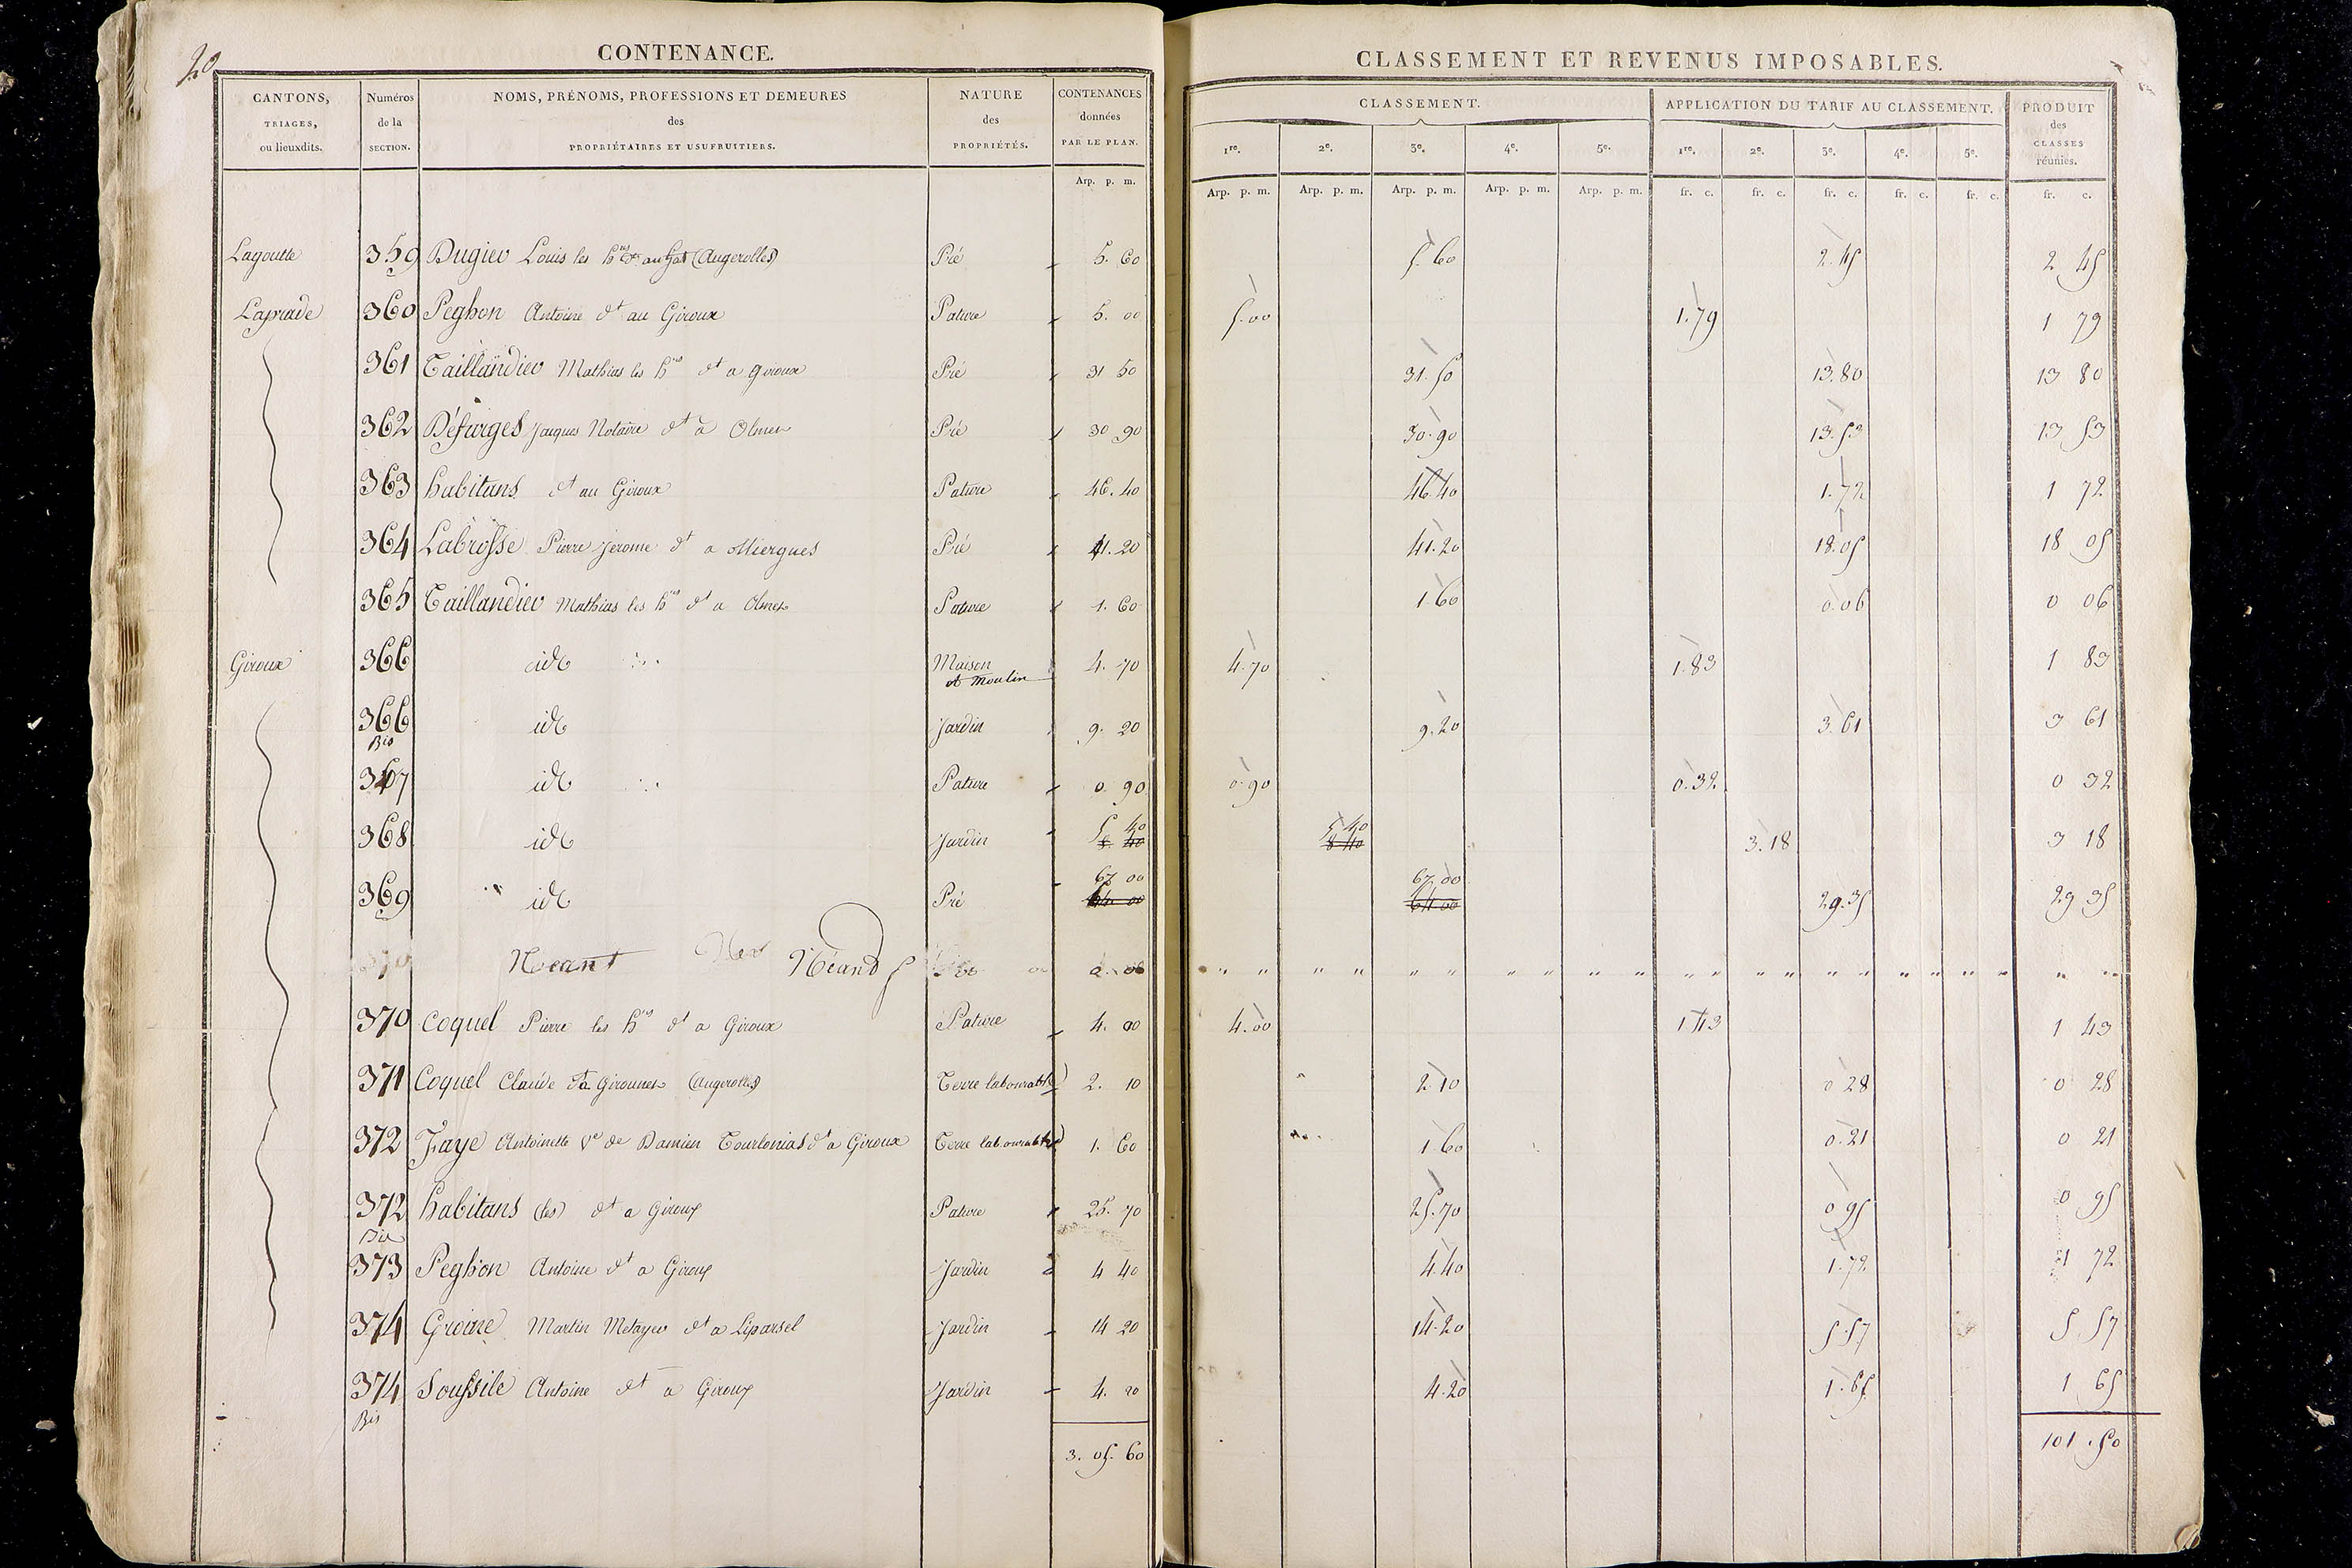 20
CONTENANCE.
CANTONS, TRIAGES, ou lieuxdits.
Numéros de la SECTION.
NOMS, PRÉNOMS, PROFESSIONS ET DEMEURES des PROPRIÉTAIRES ET USUFRUITIERS.
NATURE des PROPRIÉTÉS.
CONTENANCES données PAR LE PLAN.
Arp. p. m.
CLASSEMENT ET REVENUS IMPOSABLES.
CLASSEMENT.
APPLICATION DU TARIF AU CLASSEMENT.
PRODUIT des CLASSES réunies.
1re. 2e. 3e. 4e. 5e. 1re. 2e. 3e. 4e. 5e.
Arp. p. m. Arp. p. m. Arp. p. m. Arp. p. m. Arp. p. m. fr. c. fr. c. fr. c. fr. c. fr. c. fr. c.
Lagoutte 359 Dugiev Louis les hrs (Augerolles) Pré 5. 60 5. 60 2. 45 2 45
Laprade 360 Peghon Antoine dt au Giroux Pature 5. 00 5. 00 1. 79 1 79
361 Taillandiev Mathias les hrs dt a giroux Pré 31 50 31. 50 13. 80 13 80
362 Défarges Jacques Notaire dt a Olmet Pré 30 90 30. 90 13. 53 13 53
363 habitans dt au Giroux Pature 46. 40 46. 40 1. 72 1 72
364 Labrosse Pierre Jerome dt a Miergues Pré 41. 20 41. 20 18. 05 18 05
365 Taillandiev Mathias les hrs dt a Olmet Pature 1. 60 1 60 0. 06 0 06
Giroux 366 id Maison et Moulin 4. 70 4. 70 1. 83 1 83
366 Bis id Jardin 9. 20 9. 20 3. 61 3 61
367 id Pature 0. 90 0. 90 0. 32 0 32
368 id Jardin 5 40 5 40 3. 18 3 18
8. 40 8 40
369 id Pré 67 00 67. 00 29. 35 29 35
64. 00 64. 00
Néant Néant
370 Coquel Pierre les hrs dt a Giroux Pature 4. 00 4. 00 1 43 1 43
371 Coquel Claude dt a Girounet (Augerolles) Terre labourable 2. 10 2. 10 0 28 0 28
372 Faye Antoinette Ve de Damien Tourlonias dt a Giroux Terre labourable 1. 60 1. 60 0. 21 0 21
372 Bis habitans (les) dt a Giroux Pature 25. 70 25. 70 0 95 0 95
373 Peghon Antoine dt a Giroux Jardin 4 40 4. 40 1. 72 1 72
374 Groine Martin Metayev dt a Liparsel Jardin 14 20 14. 20 5. 57 5 57
374 Bis Soussile Antoine dt a Giroux Jardin 4. 20 4. 20 1. 65 1 65
3. 05. 60 101. 50